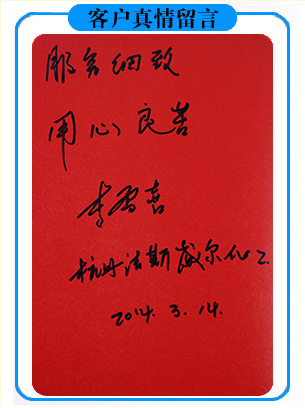 客户真情留言
服务细致
用心良善
李智喜
杭州法斯威尔化工
2014.3.14.